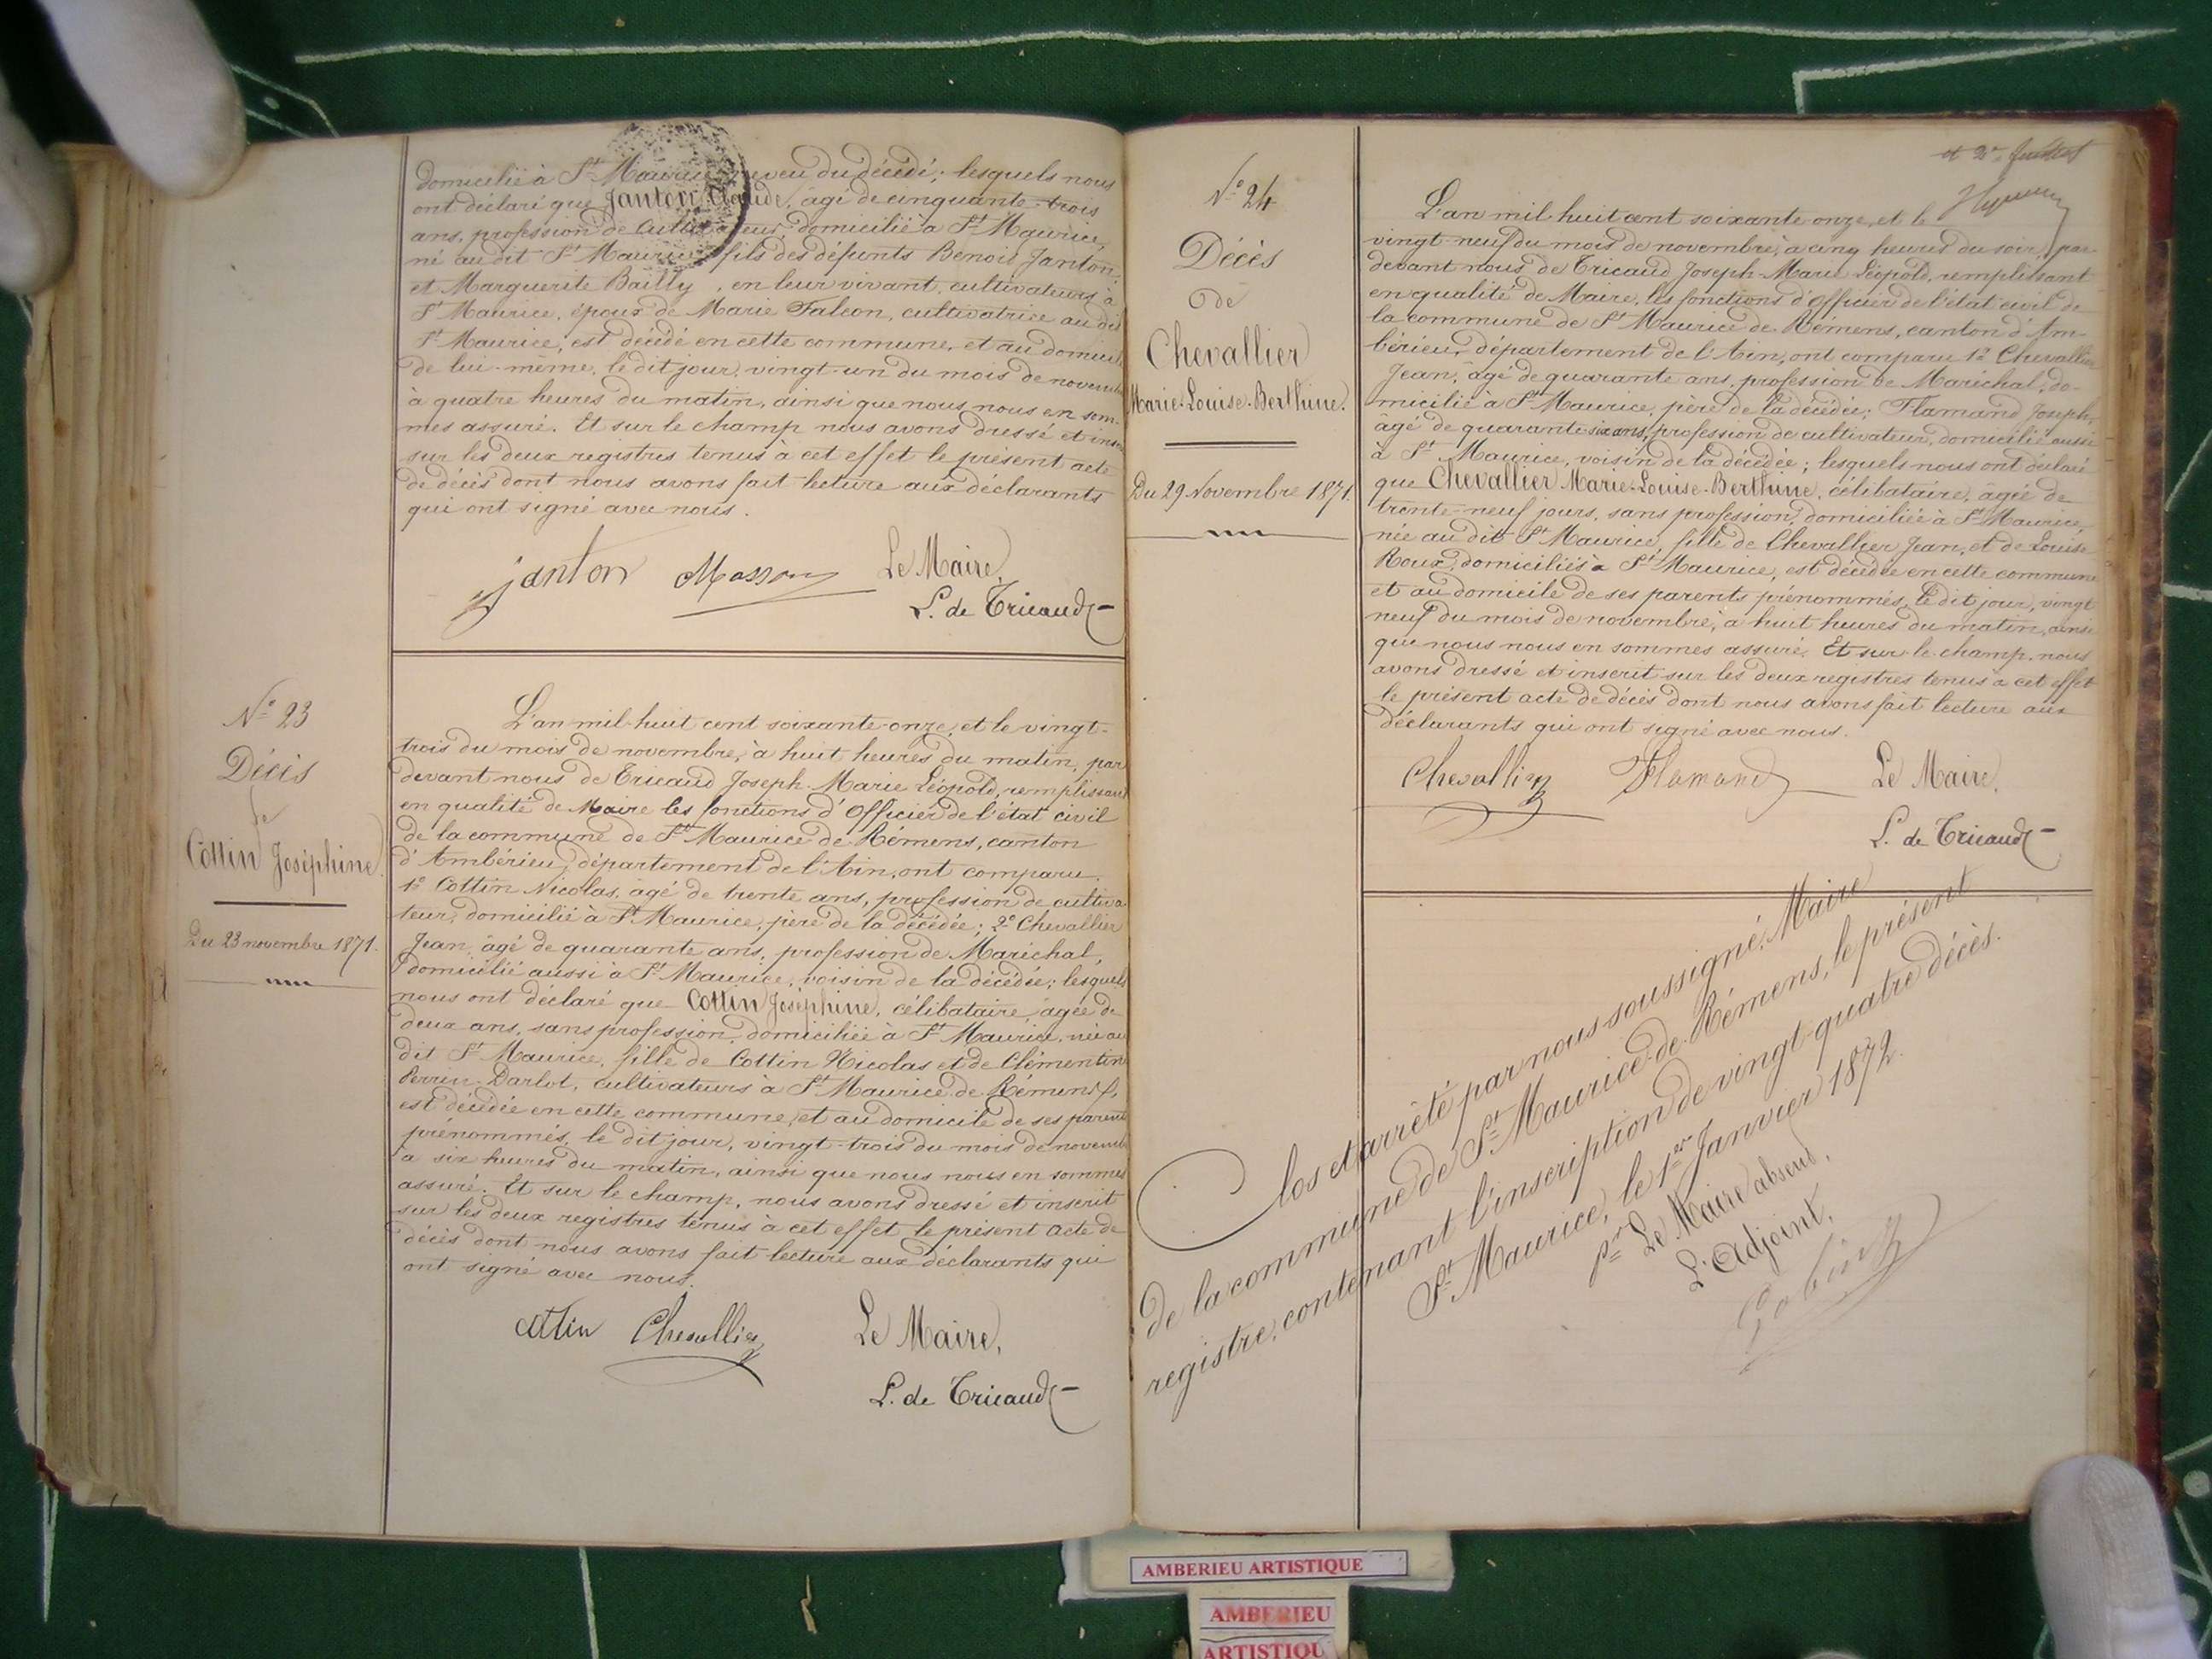 domicilié à St Maurice neveu du décédé; lesquels nous
ont déclaré que Janton Claude, âgé de cinquante-trois
ans, profession de cultivateur, domicilié à St Maurice,
né audit St Maurice, fils des défunts Benoit Janton
et Marguerite Bailly, en leur vivant, cultivateurs à
St Maurice, époux de Marie Falcon, cultivatrice au dit
St Maurice, est décédé en cette commune, et au domicile
de lui-même, le dit jour, vingt-un du mois de novembre
à quatre heures du matin, ainsi que nous nous en som-
mes assuré. Et sur le champ nous avons dressé et inscrit
sur les deux registres tenus à cet effet le présent acte
de décès dont nous avons fait lecture aux déclarants
qui ont signé avec nous.
janton Masson Le Maire,
L. de Tricaud
No 23
Décès
de
Cottin Joséphine.
Du 23 novembre 1871.
L'an mil huit cent soixante-onze, et le vingt-
trois du mois de novembre, à huit heures du matin, par
devant nous de Tricaud Joseph-Marie Léopold, remplissant
en qualité de Maire les fonctions d'Officier de l'état civil
de la commune de St Maurice de Rémens, canton
d'Ambérieu, département de l'Ain, ont comparu
1o Cottin Nicolas, âgé de trente ans, profession de cultiva
teur, domicilié à St Maurice, père de la décédée; 2o Chevallier
Jean, âgé de quarante ans, profession de Maréchal,
domicilié aussi à St Maurice, voisin de la décédée; lesquels
nous ont déclaré que Cottin Joséphine, célibataire, âgée de
deux ans, sans profession, domiciliée à St Maurice, née au
dit St Maurice, fille de Cottin Nicolas et de Clémentine
Perrin-Darlot, cultivateurs à St Maurice de Rémens,
est décédée en cette commune, et au domicile de ses parents
prénommés, le dit jour, vingt-trois du mois de novembre
à six heures du matin, ainsi que nous nous en sommes
assuré. Et sur le champ, nous avons dressé et inscrit
sur les deux registres tenus à cet effet le présent acte de
décès dont nous avons fait lecture aux déclarants qui
ont signé avec nous.
Cottin Chevallier Le Maire,
L. de Tricaud
No 24
Décès
de
Chevallier
Marie-Louise-Berthine.
Du 29 Novembre 1871.
L'an mil huit cent soixante-onze, et le
vingt-neuf du mois de novembre, à cinq heures du soir, par-
devant nous de Tricaud Joseph-Marie Léopold, remplissant
en qualité de Maire, les fonctions d'Officier de l'état civil de
la commune de St Maurice de Rémens, canton d'Am-
bérieu, département de l'Ain, ont comparu 1o Chevallier
Jean, âgé de quarante ans, profession de Maréchal, do-
micilié à St Maurice, père de la décédée; Flamand Joseph,
âgé de quarante six ans, profession de cultivateur, domicilié aussi
à St Maurice, voisin de la décédée; lesquels nous ont déclaré
que Chevallier Marie-Louise-Berthine, célibataire, âgée de
trente-neuf jours, sans profession, domiciliée à St Maurice,
née au dit St Maurice, fille de Chevallier Jean, et de Louise
Roux, domiciliés à St Maurice, est décédée en cette commune
et au domicile de ses parents prénommés, le dit jour, vingt
neuf du mois de novembre, à huit heures du matin, ainsi
que nous nous en sommes assuré. Et sur le champ, nous
avons dressé et inscrit sur les deux registres tenus à cet effet
le présent acte de décès dont nous avons fait lecture aux
déclarants qui ont signé avec nous.
Chevallier Flamand Le Maire,
L. de Tricaud
Clos et arrêté par nous soussigné, Maire
de la commune de St Maurice-de-Rémens, le présent
registre, contenant l'inscription de vingt-quatre décès.
St Maurice, le 1er Janvier 1872.
pr Le Maire absent,
L'Adjoint,
AMBERIEU ARTISTIQUE
AMBERIEU
ARTISTIQU